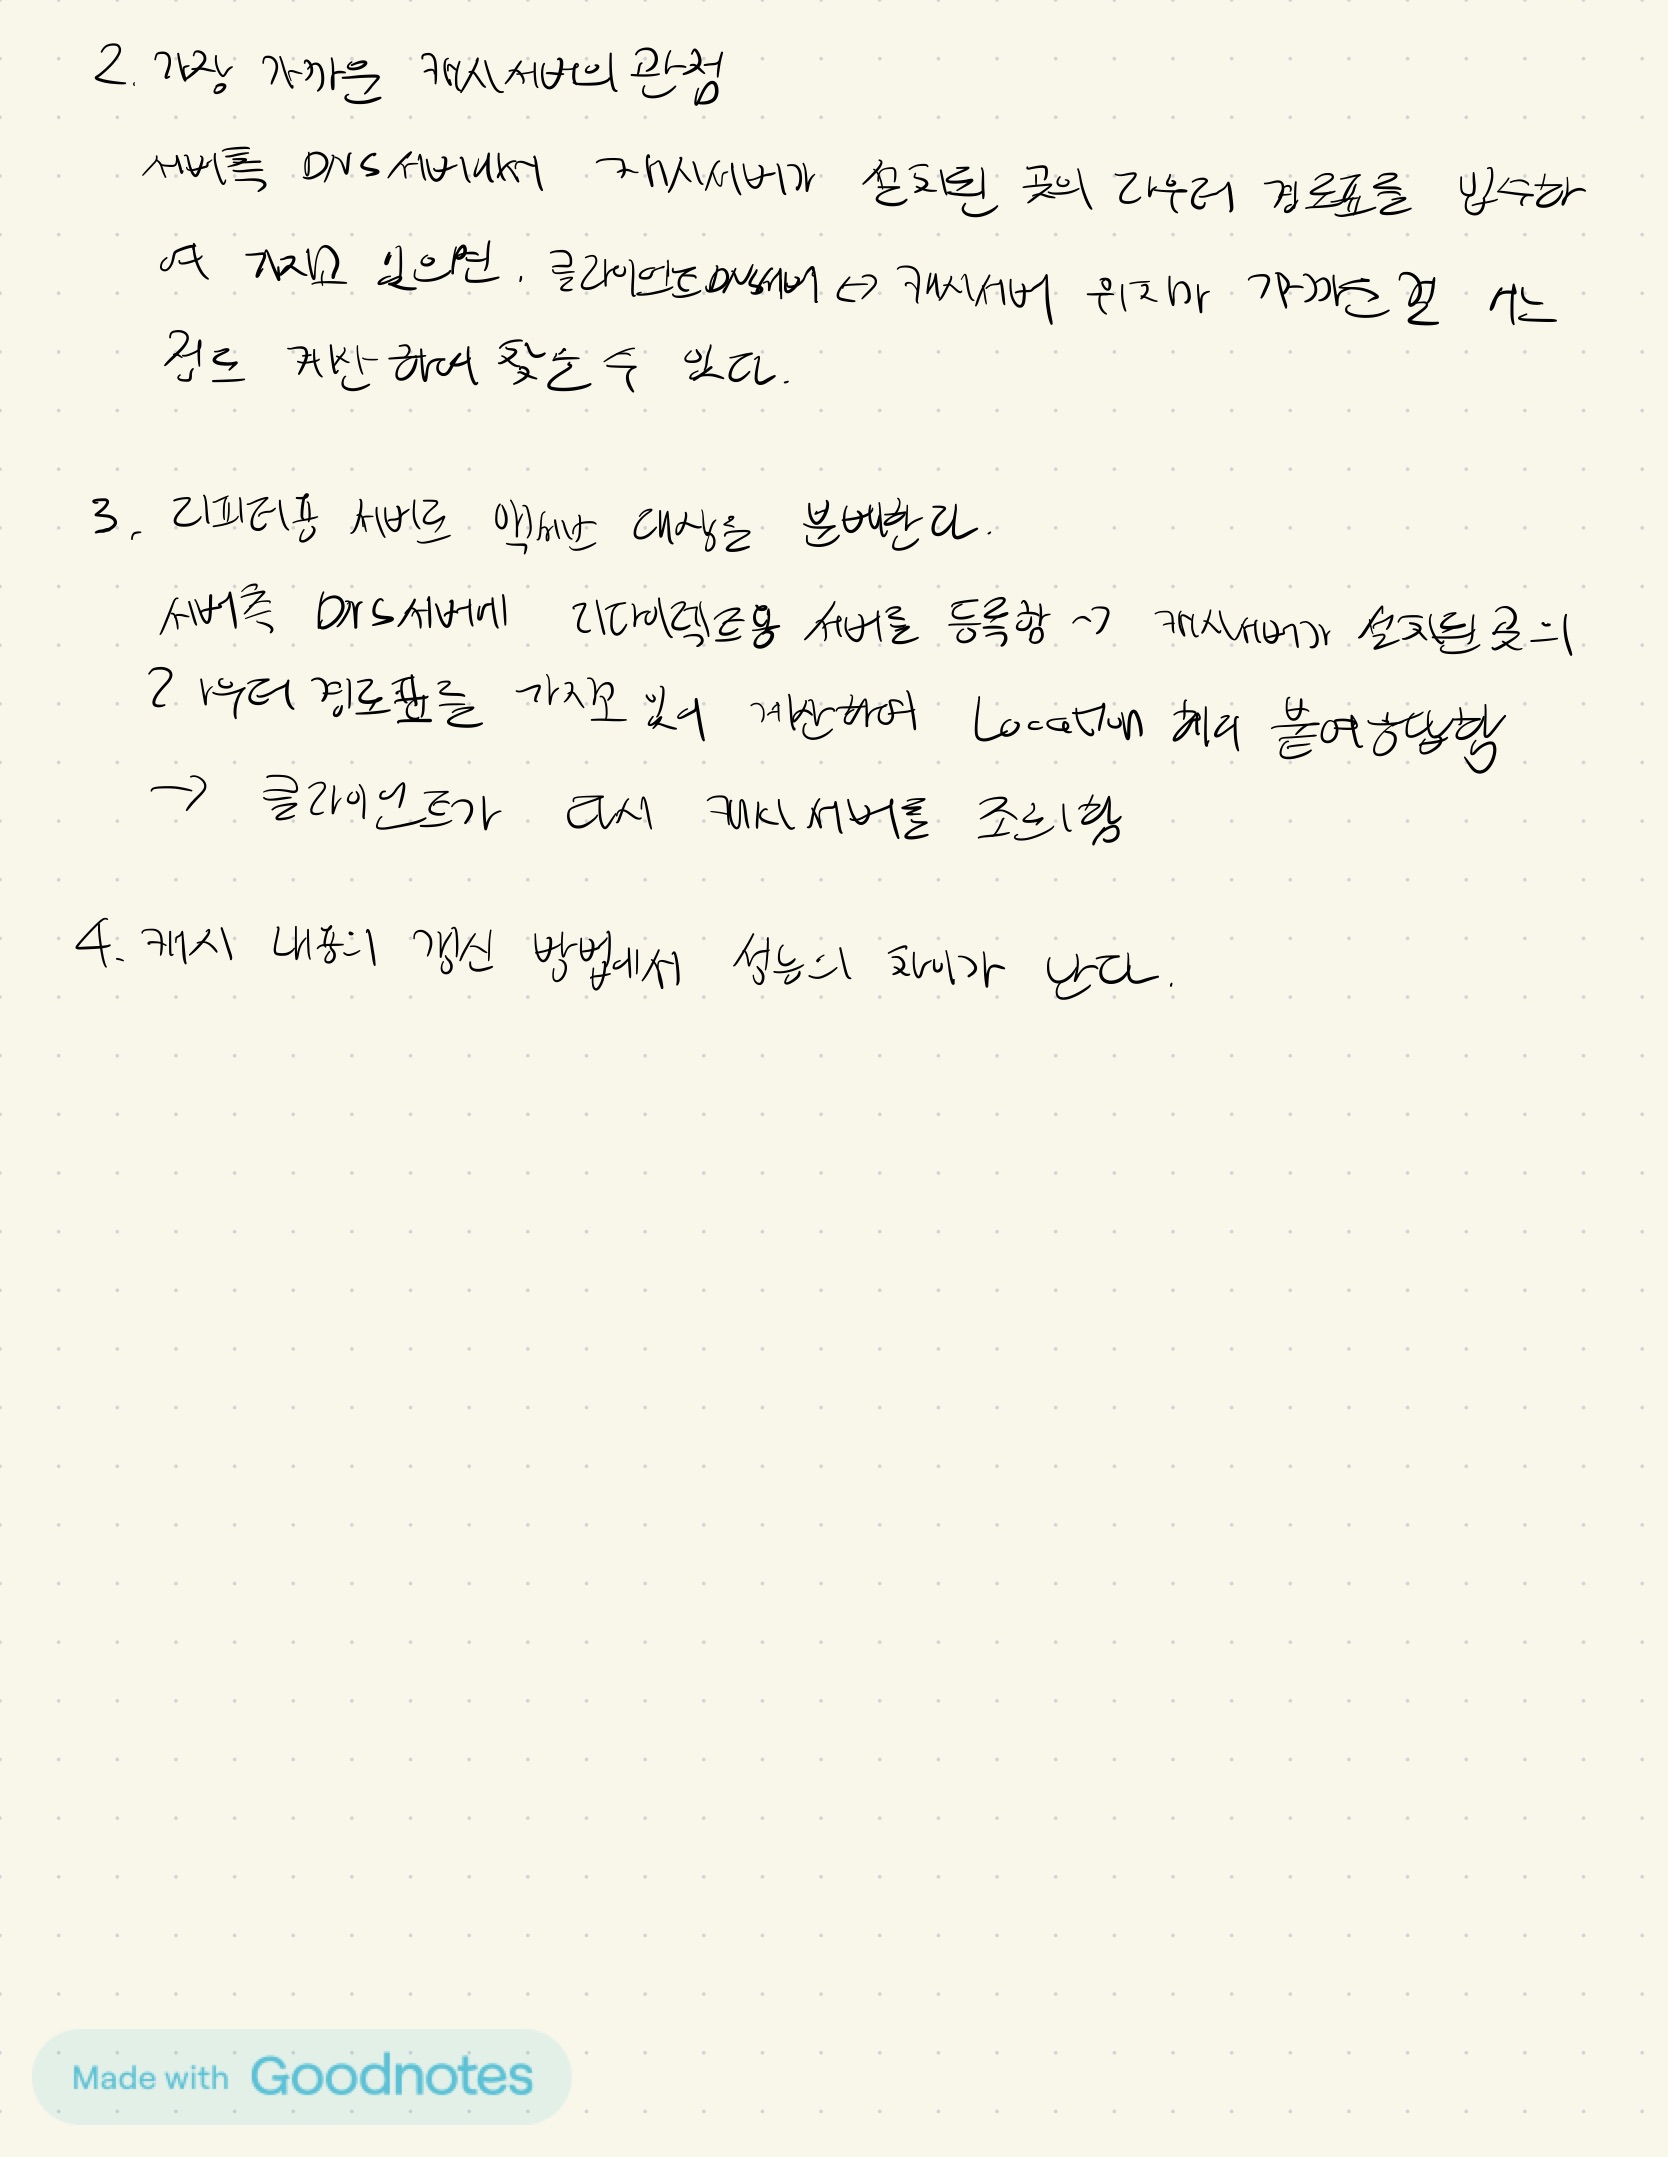 2. 가장 가까운 캐시서버의 관점
서버측 DNS서버에서 캐시서버가 설치된 곳의 라우터 경로표를 입수하
여 가지고 있으면, 클라이언트DNS서버 ↔ 캐시서버 위치마 가까운걸
정도 계산하여 찾을 수 있다.
3. 리피터용 서버로 액세스 대상을 분배한다.
서버측 DNS서버에 리다이렉트용 서버를 등록함 → 캐시서버가 설치된곳의
라우터 경로표를 가지고 있어 계산하여 Location 헤더 붙여응답함
→ 클라이언트가 다시 캐시서버를 조회함
4. 캐시 내용의 갱신 방법에서 성능의 차이가 난다.
Made with Goodnotes